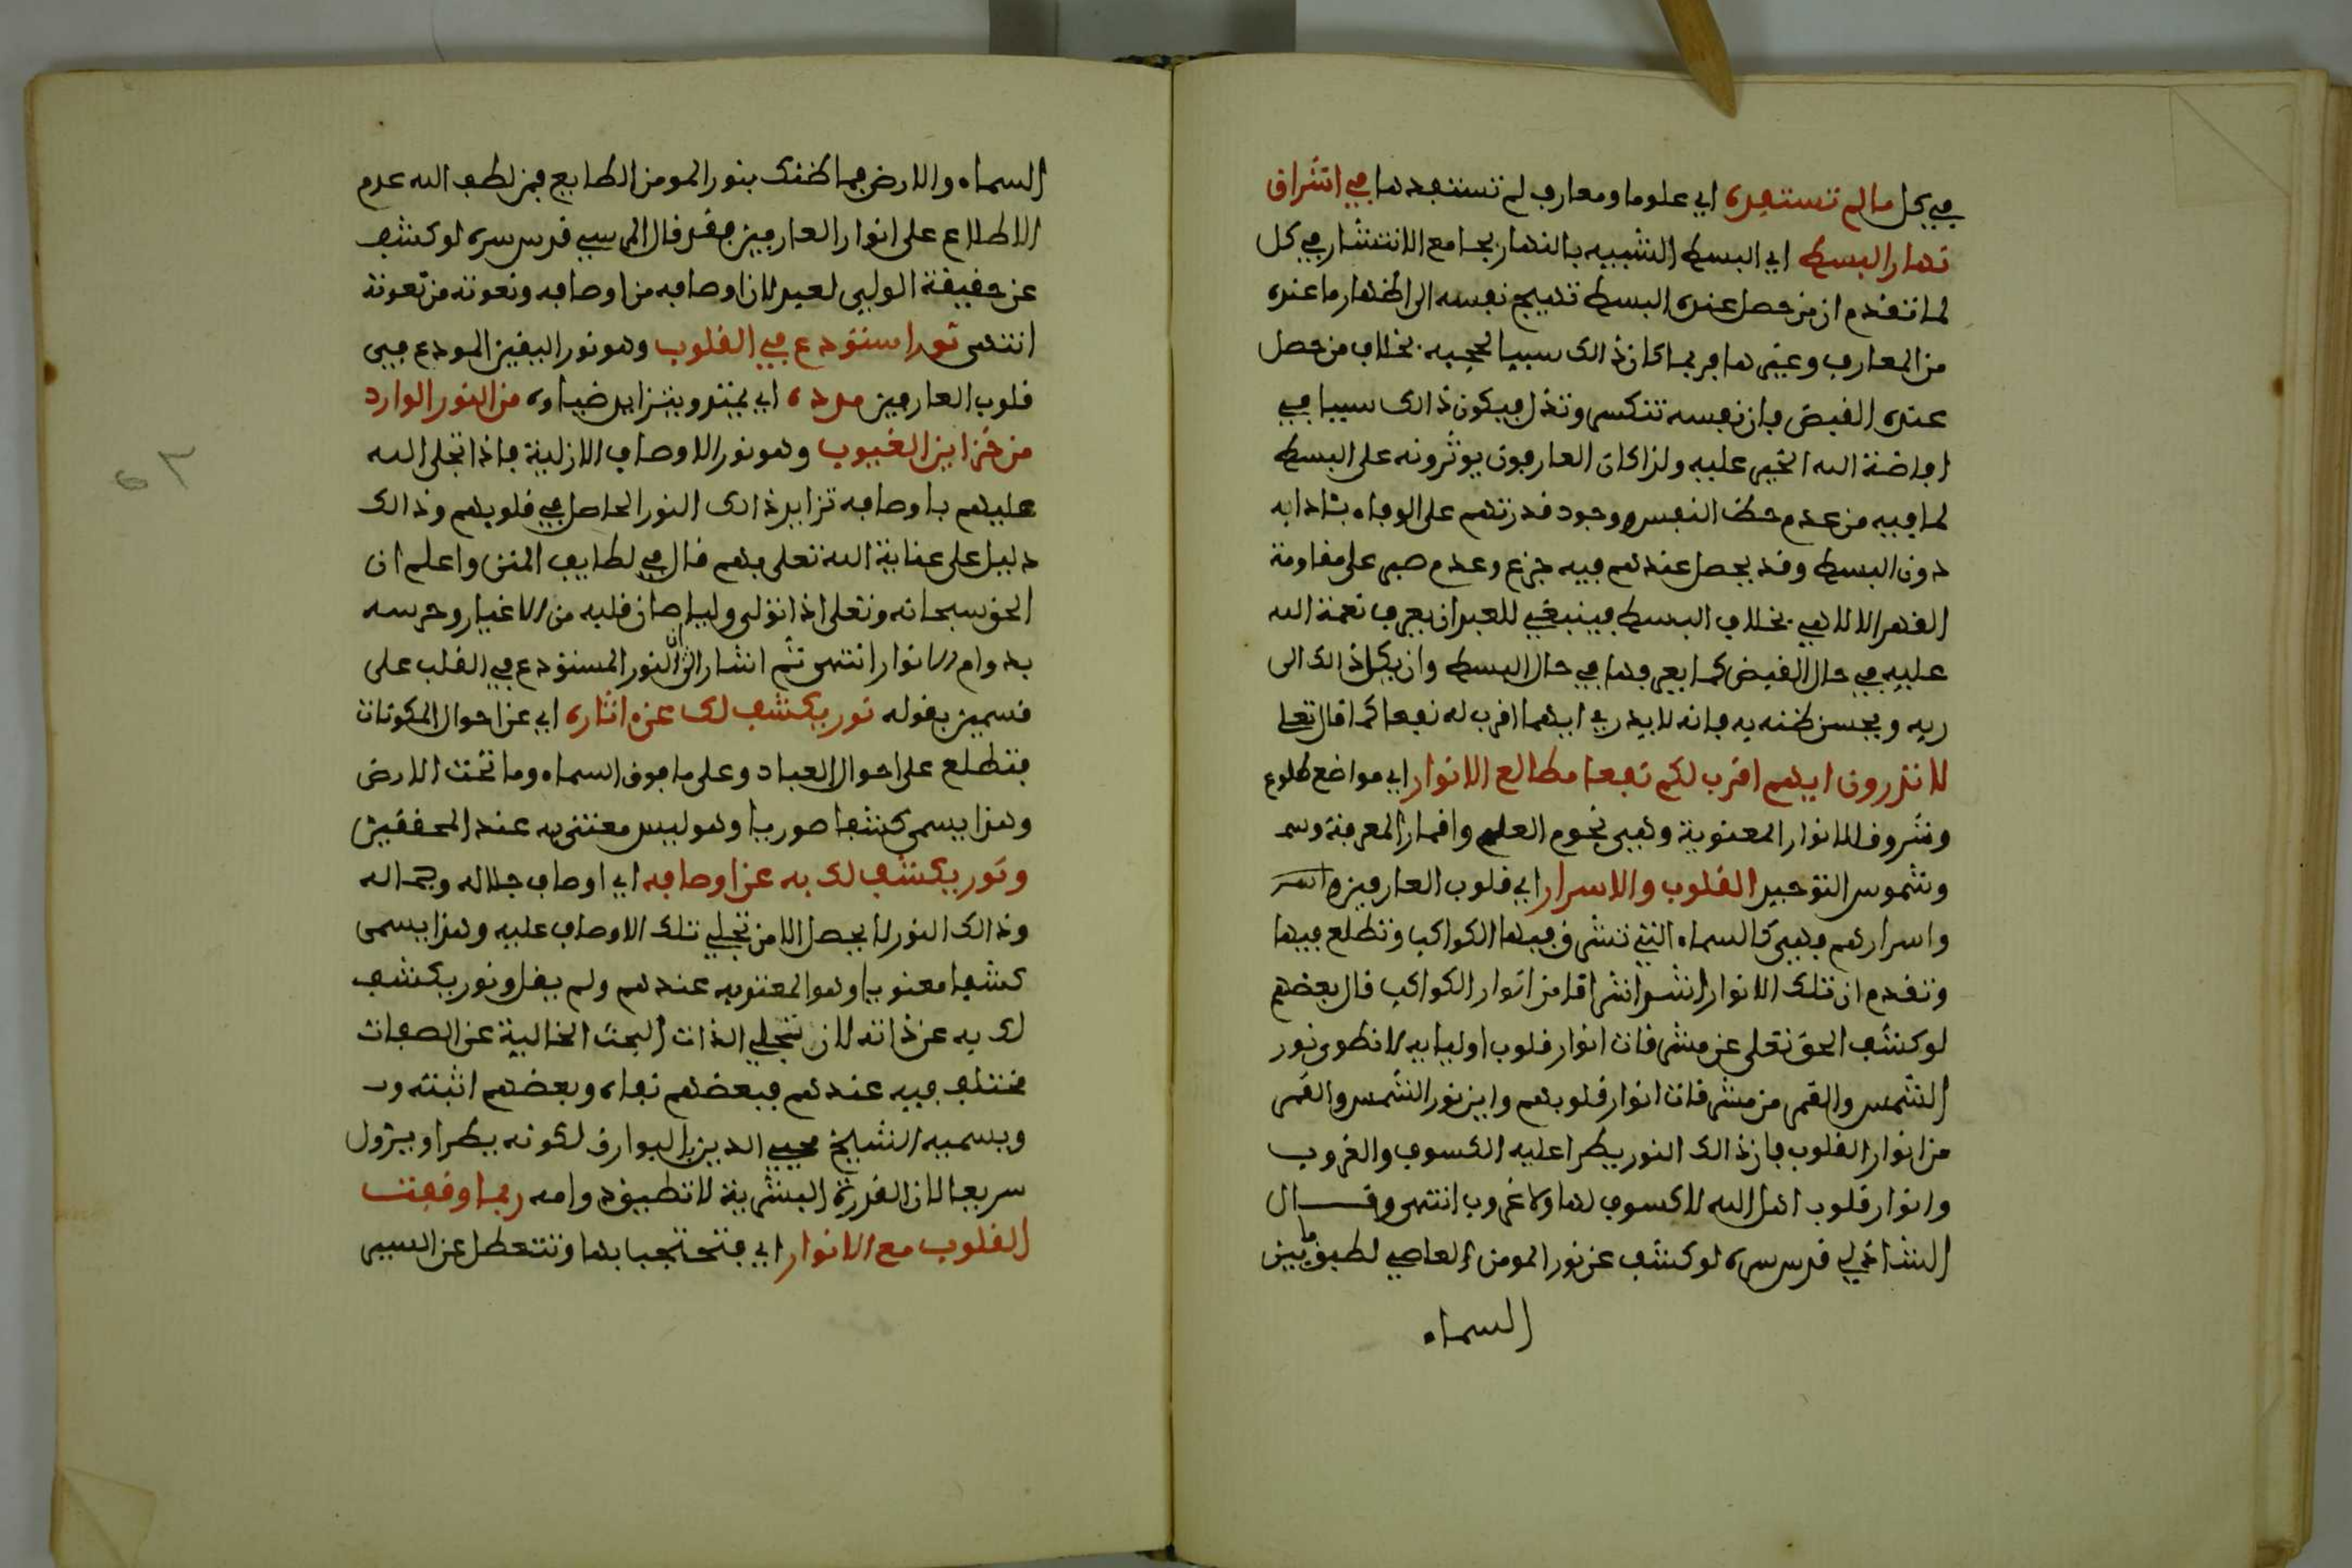 في كل ما لم تستفده اي علوما ومعارف لم تستفدها في اشراق
نهار البسط اي البسط الشبيه بالنهار بجامع الانتشار في كل
لما تقدم ان من حصل عنده البسط تهيج نفسه الى اظهار ما عنده
من المعارف وغيرها فربما كان ذالك سببا لحجبه بخلاف من حصل
عنده القبض فان نفسه تنكسر وتذل فيكون ذالك سببا في
افاضة الله الخير عليه ولذا كان العارفون يوثرونه على البسط
لما فيه من عدم حظ النفس ووجود قدرتهم على الوفاء بئادابه
دون البسط وقد يحصل عندهم فيه جزع وعدم صبر على مقاومة
القهر الالاهي بخلاف البسط فينبغي للعبد ان يعرف نعمة الله
عليه في حال القبض كما يعرفها في حال البسط وان يكل ذالك الى
ربه ويحسن ظنه به فانه لا يدري ايهما اقرب له نفعا كما قال تعلى
لا تدرون ايهم اقرب لكم نفعا مطالع الانوار اي مواضع طلوع
وشروق الانوار المعنوية وهي نجوم العلم واقمار المعرفة
وشموس التوحيد القلوب والاسرار اي قلوب العارفين
واسرارهم فهي كالسماء التي تشرق فيها الكواكب وتطلع فيها
وتقدم ان تلك الانوار اشد اشراقا من انوار الكواكب قال بعضهم
لو كشف الحق تعلى عن مشرقات انوار قلوب اوليايه لانطوى نور
الشمس والقمر من مشرقات انوار قلوبهم واين نور الشمس والقمر
من انوار القلوب فان ذالك النور يطرا عليه الكسوف والغروب
وانوار قلوب اهل الله لا كسوف لها ولا غروب انتهى وقال
الشاذلي قدس سره لو كشف عن نور المومن العاصي لطبق ما بين
السماء
السماء والارض فما ظنك بنور المومن الطايع فمن لطف الله عدم
الاطلاع على انوار العارفين فقد قال المرسي قدس سره لو كشف
عن حقيقة الولي لعبد لان اوصافه من اوصافه ونعوته من نعوته
انتهى نور استودع في القلوب وهو نور اليقين المودع في
قلوب العارفين مدده اي يمتد ويتزايد ضياوه من النور الوارد
من خزاين الغيوب وهو نور الاوصاف الازلية فاذا تجلى الله
عليهم باوصافه تزايد ذالك النور الحاصل في قلوبهم وذالك
دليل على عناية الله تعلى بهم قال في لطايف المنن واعلم ان
الحق سبحانه وتعلى اذا تولى وليا صان قلبه من الاغيار وحرسه
بدوام الانوار انتهى ثم اشار الى ان النور المستودع في القلب على
قسمين بقوله نور يكشف لك عن ءاثاره اي عن احوال المكونات
فتطلع على احوال العباد وعلى ما فوق السماء وما تحت الارض
وهذا يسمى كشفا صوريا وهو ليس معتنى به عند المحققين
ونور يكشف لك به عن اوصافه اي اوصاف جلاله وجماله
وذالك النور لا يحصل الا من تجلي تلك الاوصاف عليه وهذا يسمى
كشفا معنويا وهو المعتنى به عندهم ولم يقل ونور يكشف
لك به عن ذاته لان تجلي الذات البحت الخالية عن الصفات
مختلف فيه عندهم فبعضهم نفاه وبعضهم اثبته
ويسميه الشيخ محيي الدين بالبوارق لكونه يطرا ويزول
سريعا لان القدرة البشرية لا تطيق دوامه ربما وقفت
القلوب مع الانوار اي فتحتجب بها وتتعطل عن السير